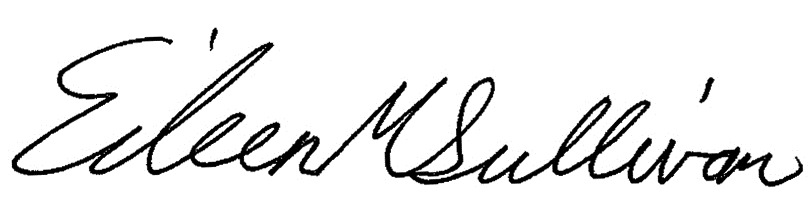 Eileen M Sullivan